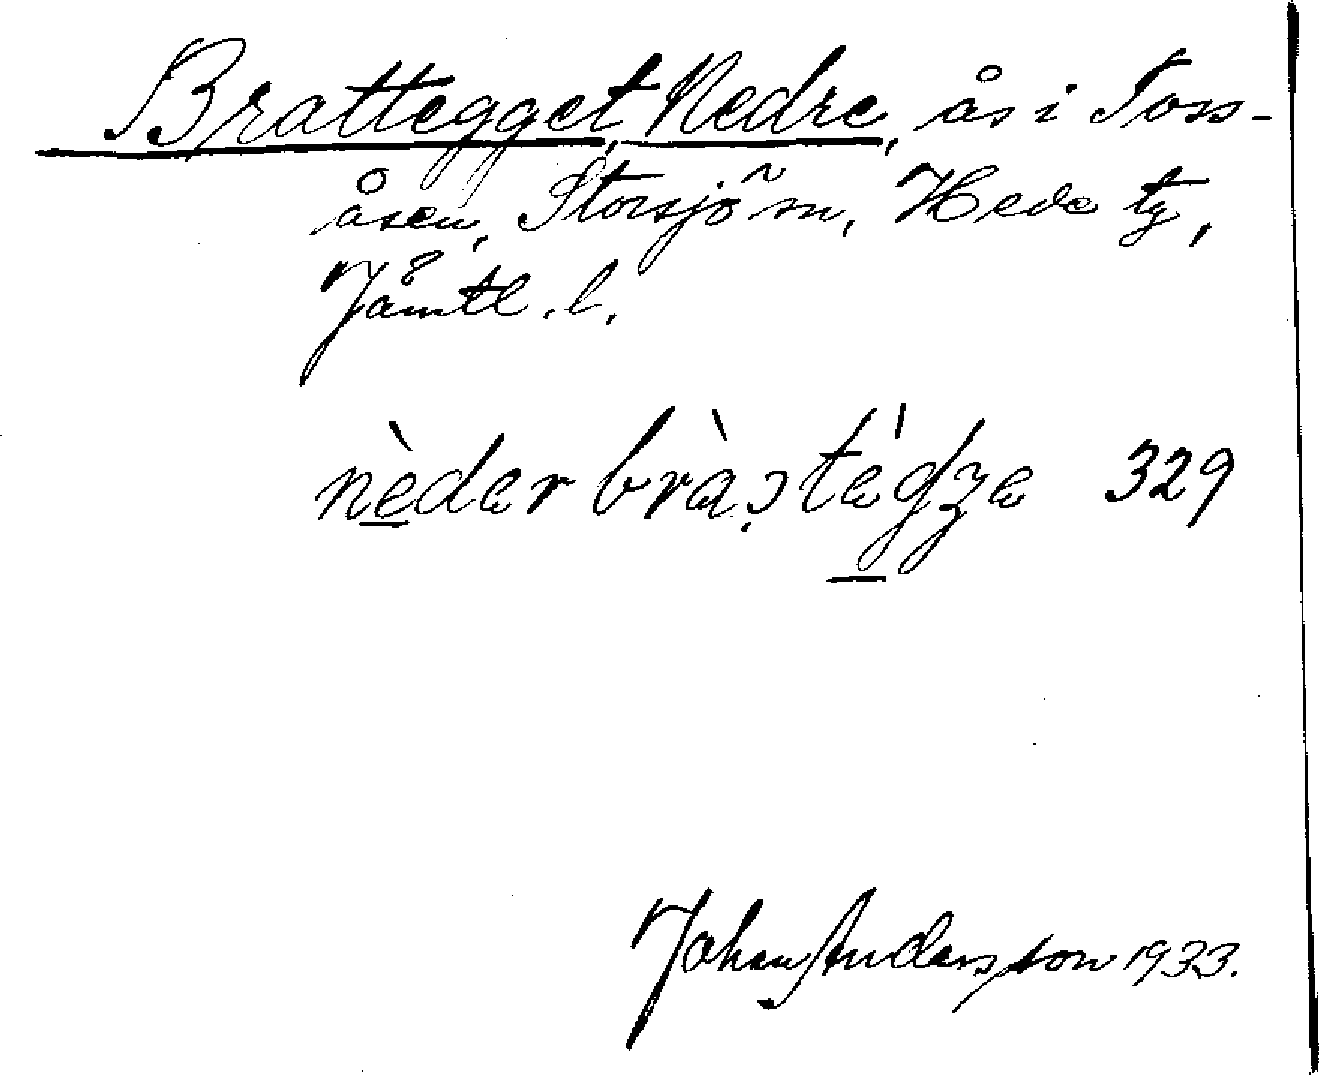 Brattegget, Nedre, ås i Toss-
åsen, Storsjö sn, Hede tg,
Jämtl. l.
nèdər bràstégzə 329
Johan Andersson 1933.